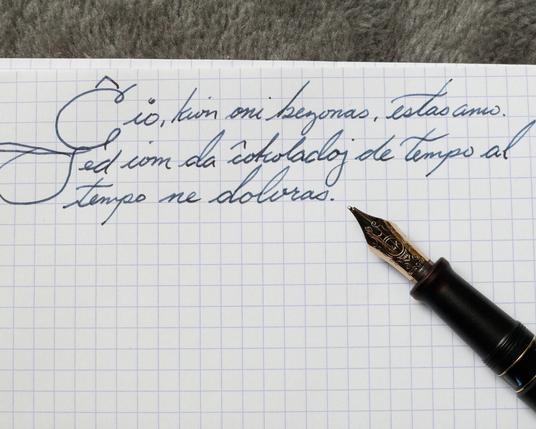 Ĉio, kion oni bezonas, estas amo.
Sed iom da ĉokoladoj de tempo al
tempo ne doloras.